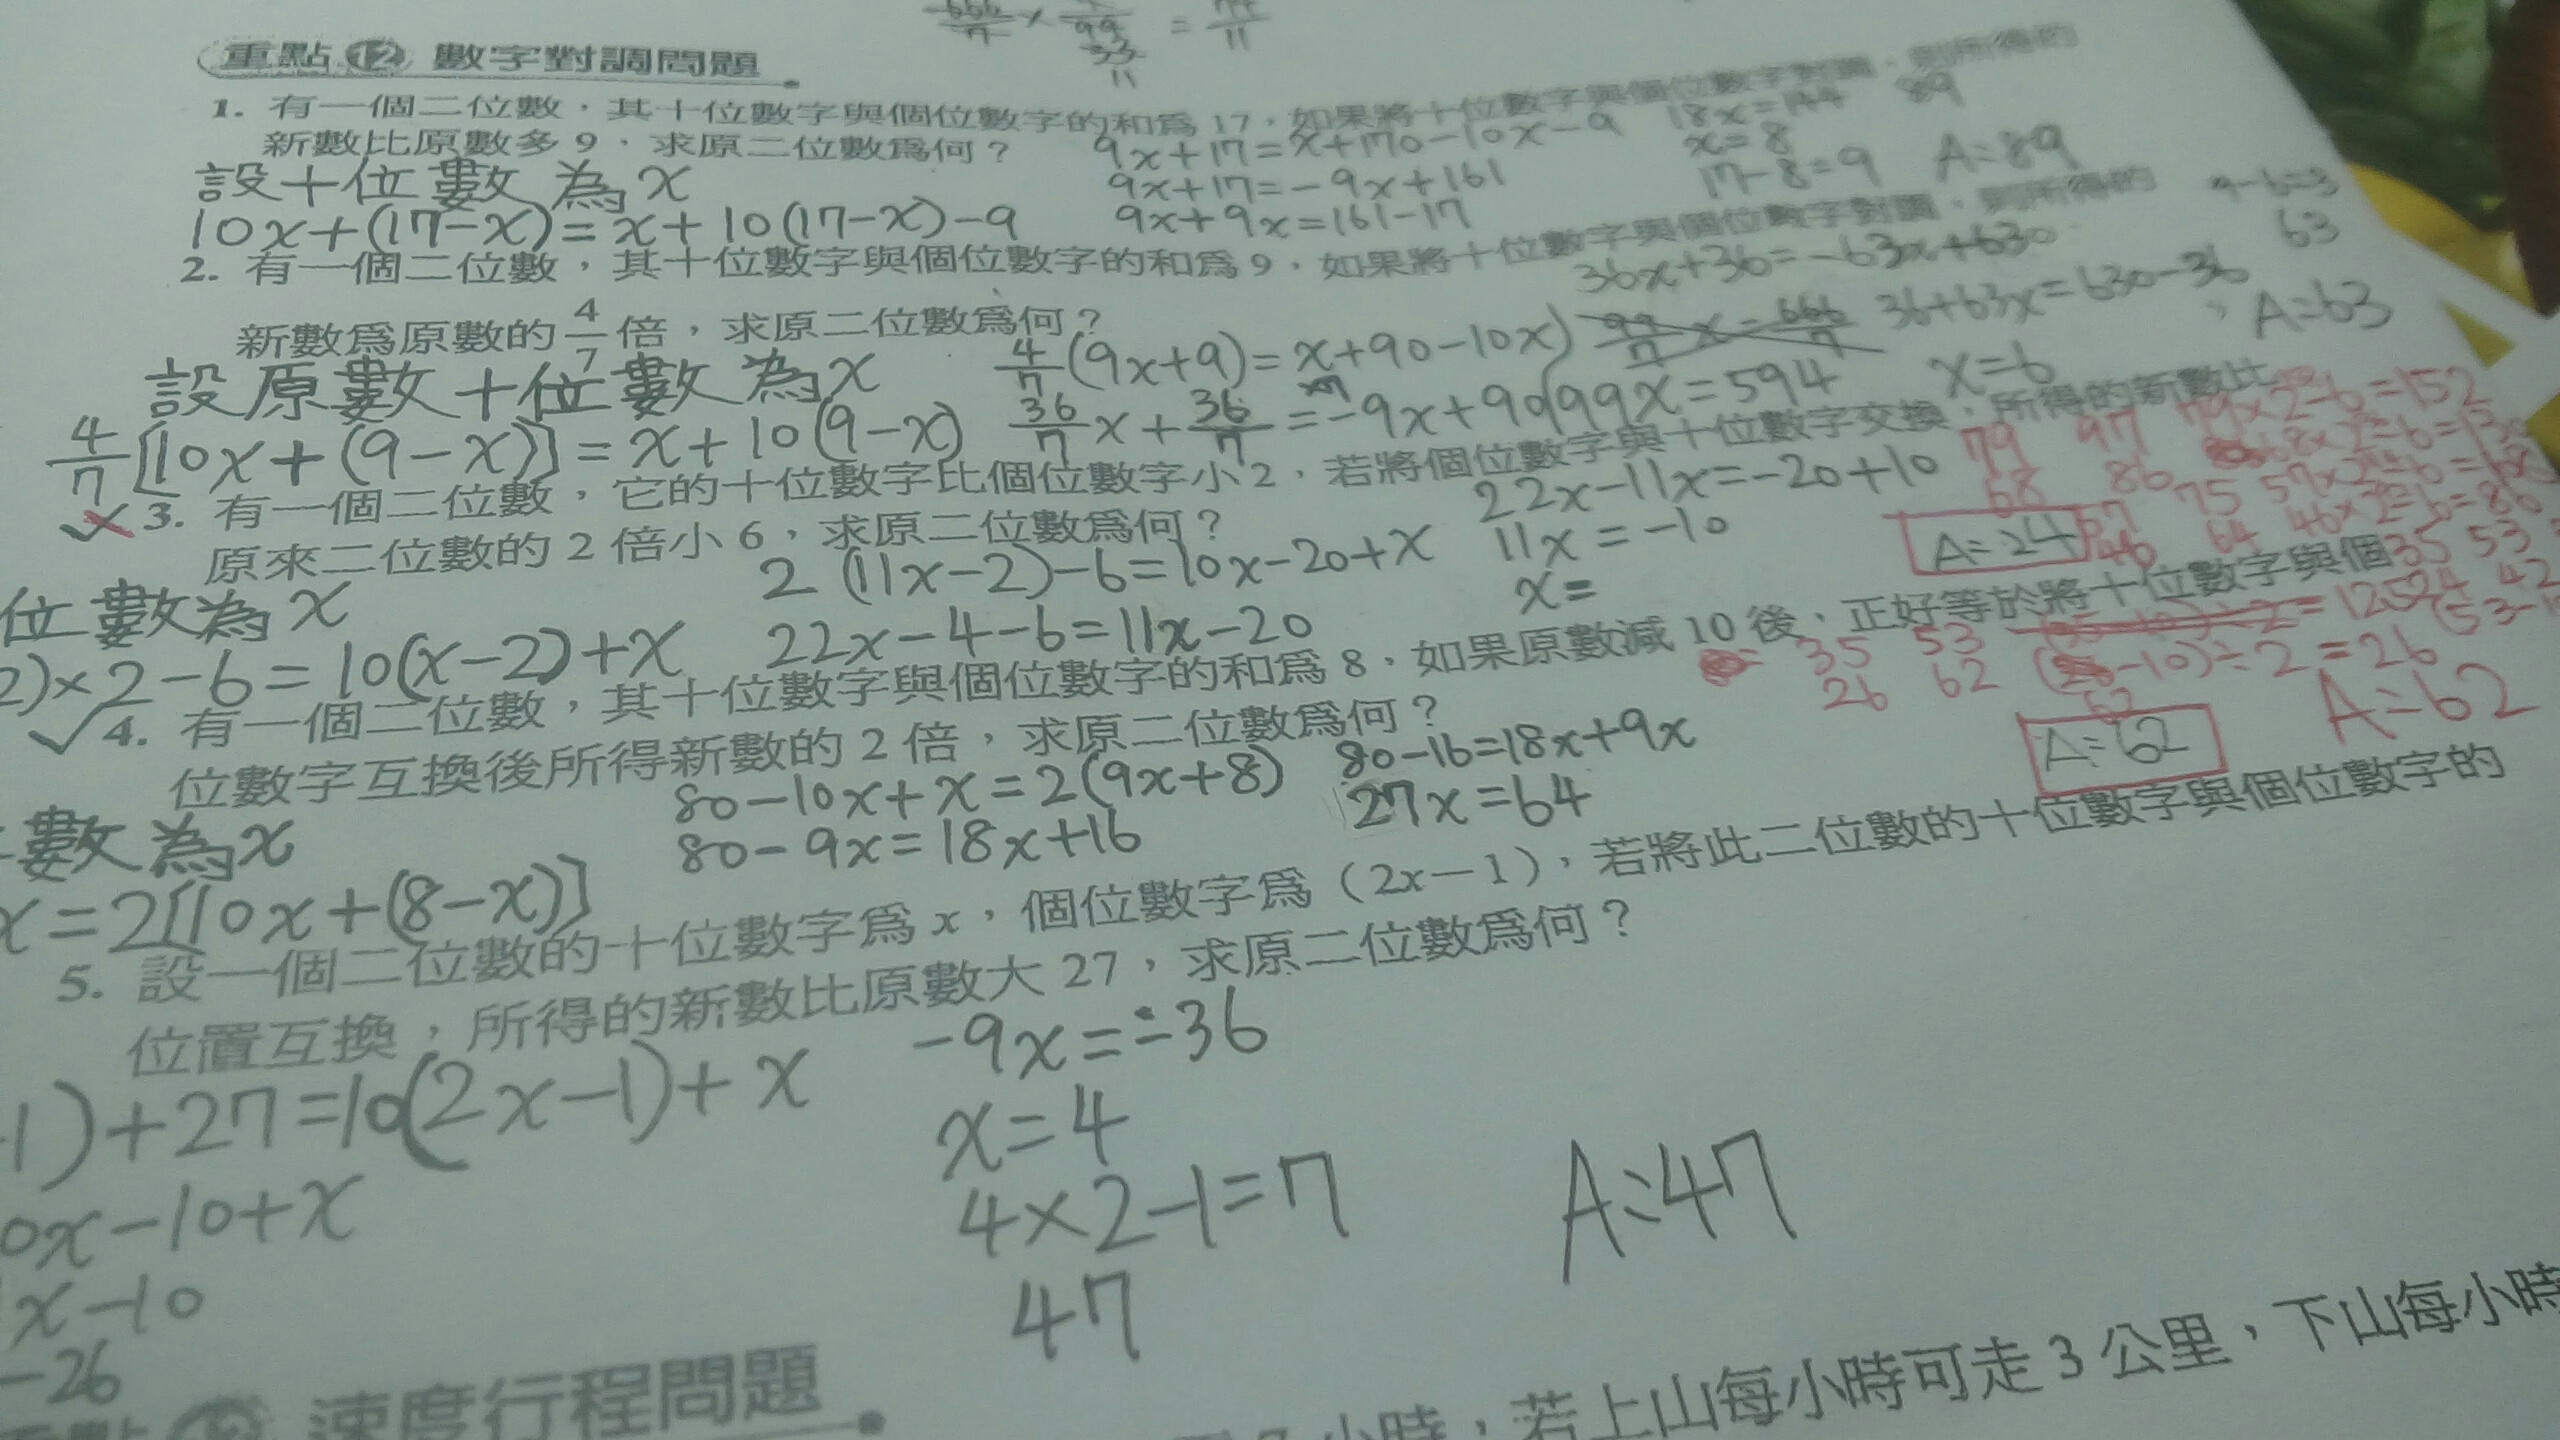 重點 12 數字對調問題
1. 有一個二位數，其十位數字與個位數字的和爲 17，如果將十位數字與個位數字對調，則所得的
新數比原數多 9，求原二位數爲何？
設十位數為x
10x+(17-x)=x+10(17-x)-9
9x+17=x+170-10x-9
9x+17=-9x+161
9x+9x=161-17
18x=144
x=8
17-8=9
89
A:89
2. 有一個二位數，其十位數字與個位數字的和爲 9，如果將十位數字與個位數字對調，則所得的
新數爲原數的 4/7 倍，求原二位數爲何？
設原數十位數為x
4/7[10x+(9-x)]=x+10(9-x)
4/7(9x+9)=x+90-10x)
36/7x+36/7=-9x+90
36x+36=-63x+630
36+63x=630-36
99x=594
x=6
9-6=3
63
A:63
3. 有一個二位數，它的十位數字比個位數字小 2，若將個位數字與十位數字交換，所得的新數比
原來二位數的 2 倍小 6，求原二位數爲何？
位數為x
2)×2-6=10(x-2)+x
2(11x-2)-6=10x-20+x
22x-4-6=11x-20
22x-11x=-20+10
11x=-10
x=
A:24
79 97 79×2-6=152
68 86 68×2-6=130
57 75 57×2-6=108
46 64 46×2-6=86
35 53
24 42
4. 有一個二位數，其十位數字與個位數字的和爲 8，如果原數減 10 後，正好等於將十位數字與個
位數字互換後所得新數的 2 倍，求原二位數爲何？
數為x
x=2[10x+(8-x)]
80-10x+x=2(9x+8)
80-9x=18x+16
80-16=18x+9x
27x=64
35 53
26 62
62
-10)÷2=26
A:62
A:62
5. 設一個二位數的十位數字爲 x，個位數字爲（2x－1），若將此二位數的十位數字與個位數字的
位置互換，所得的新數比原數大 27，求原二位數爲何？
1)+27=10(2x-1)+x
0x-10+x
x-10
-26
-9x=-36
x=4
4×2-1=7
47
A:47
速度行程問題
小時，若上山每小時可走 3 公里，下山每小時